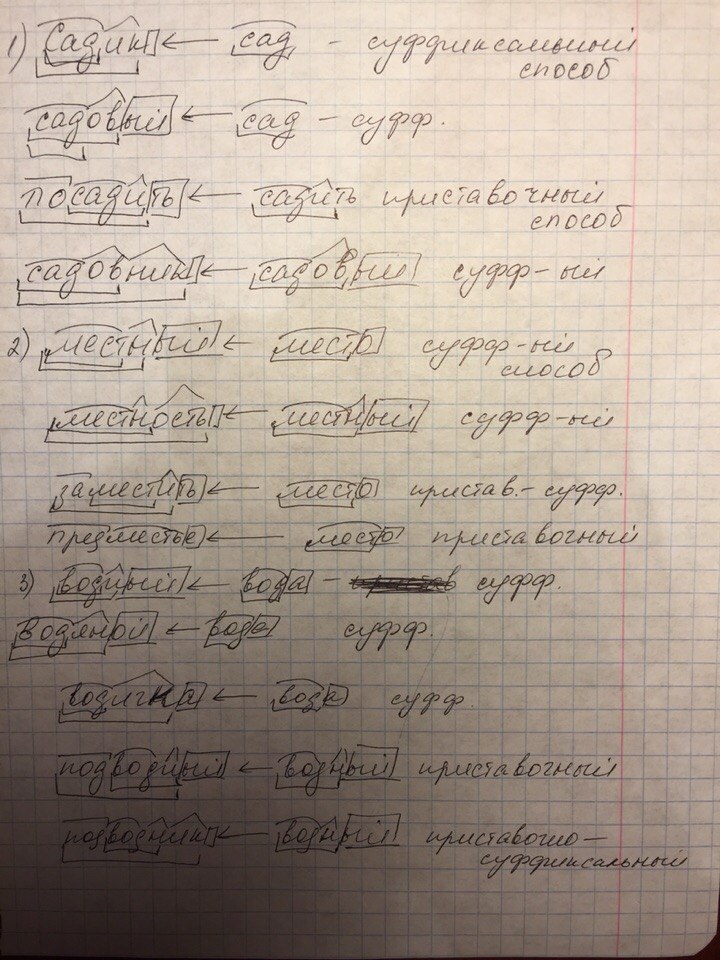 1) садик ← сад - суффиксальный
способ
садовый ← сад - суфф.
посадить ← садить приставочный
способ
садовник ← садовый суфф-ый
2) местный ← место суфф-ый
способ
местность ← местный суфф-ый
заместить ← место пристав.-суфф.
предместье ← место приставочный
3) водный ← вода - суфф.
водяной ← вода суфф.
водичка ← вода суфф.
подводный ← водный приставочный
подводник ← водный приставочно-
суффиксальный